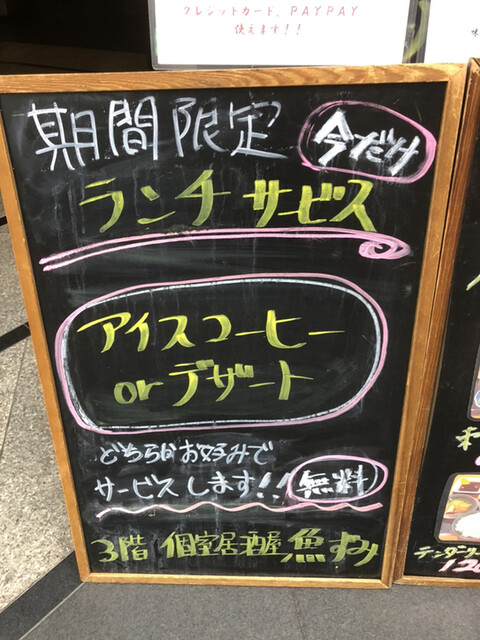 クレジットカード、PAYPAY
使えます!!
期間限定 今だけ
ランチサービス
アイスコーヒー
orデザート
どちらかお好みで
サービスします!! 無料
3階 個室居酒屋 魚ずみ